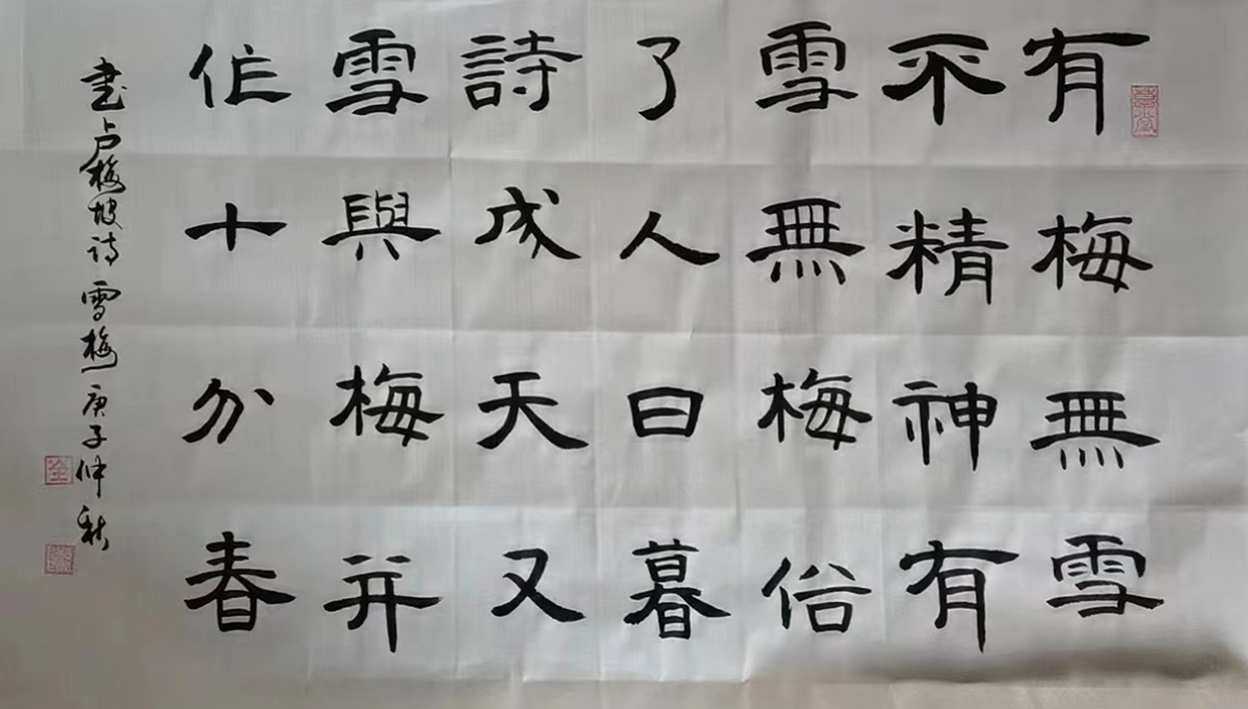 有梅無雪
不精神有
雪無梅俗
了人日暮
詩成天又
雪與梅并
作十分春
书卢梅坡诗雪梅一庚子仲秋